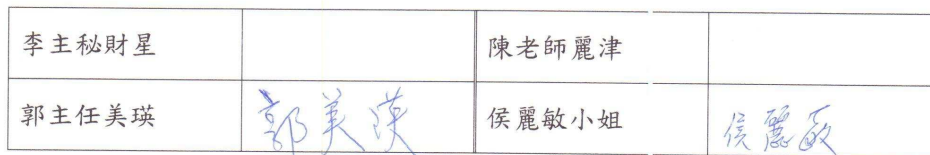 李主秘財星 陳老師麗津
郭主任美瑛 郭美瑛 侯麗敏小姐 侯麗敏